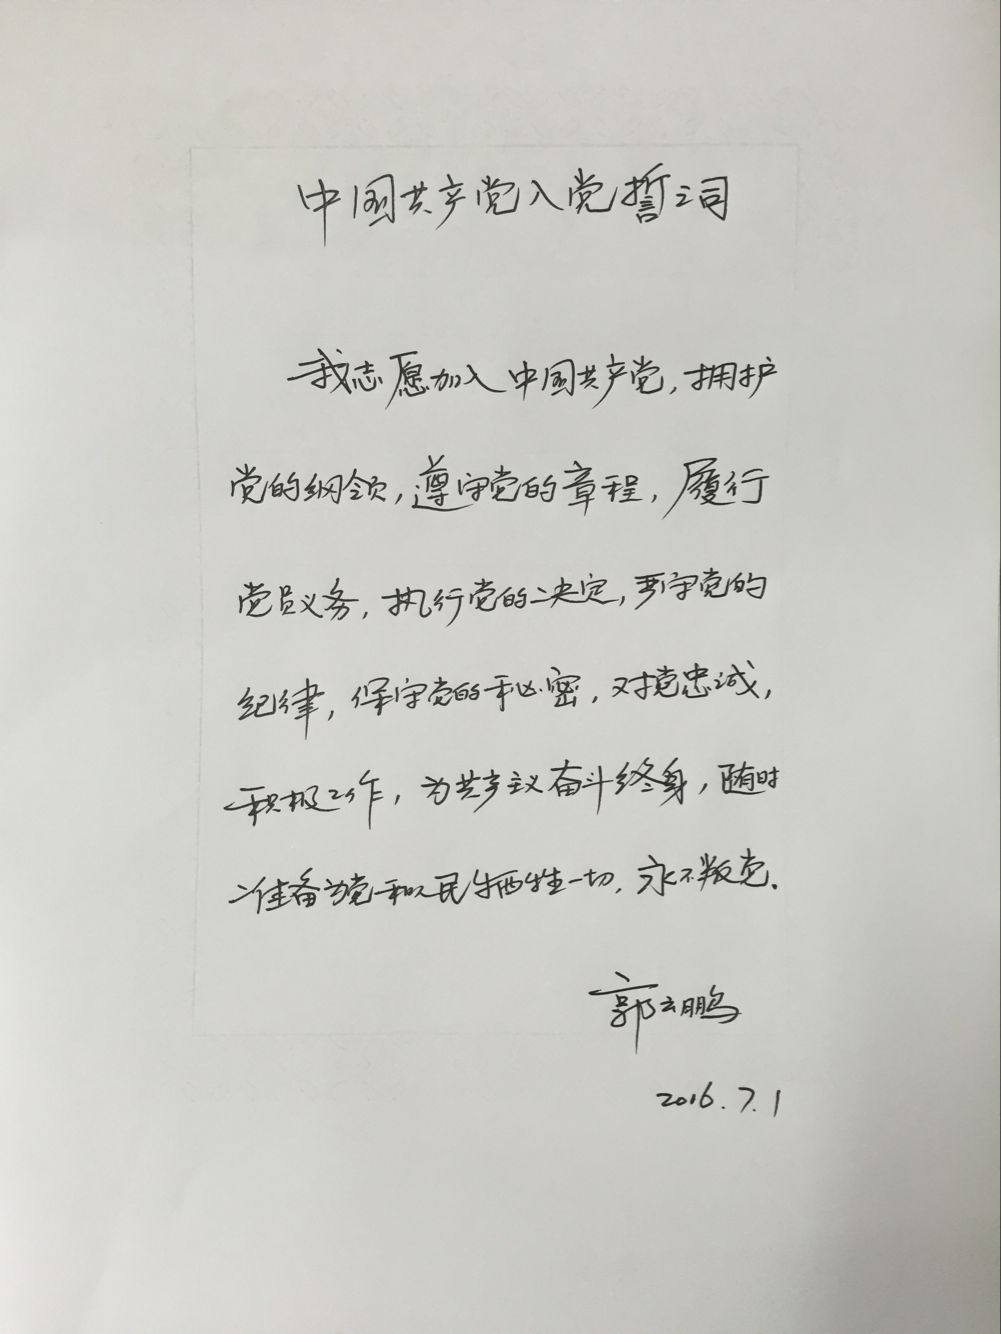 中国共产党入党誓词
我志愿加入中国共产党，拥护
党的纲领，遵守党的章程，履行
党员义务，执行党的决定，严守党的
纪律，保守党的秘密，对党忠诚，
积极工作，为共产主义奋斗终身，随时
准备为党和人民牺牲一切，永不叛党.
郭云鹏
2016.7.1